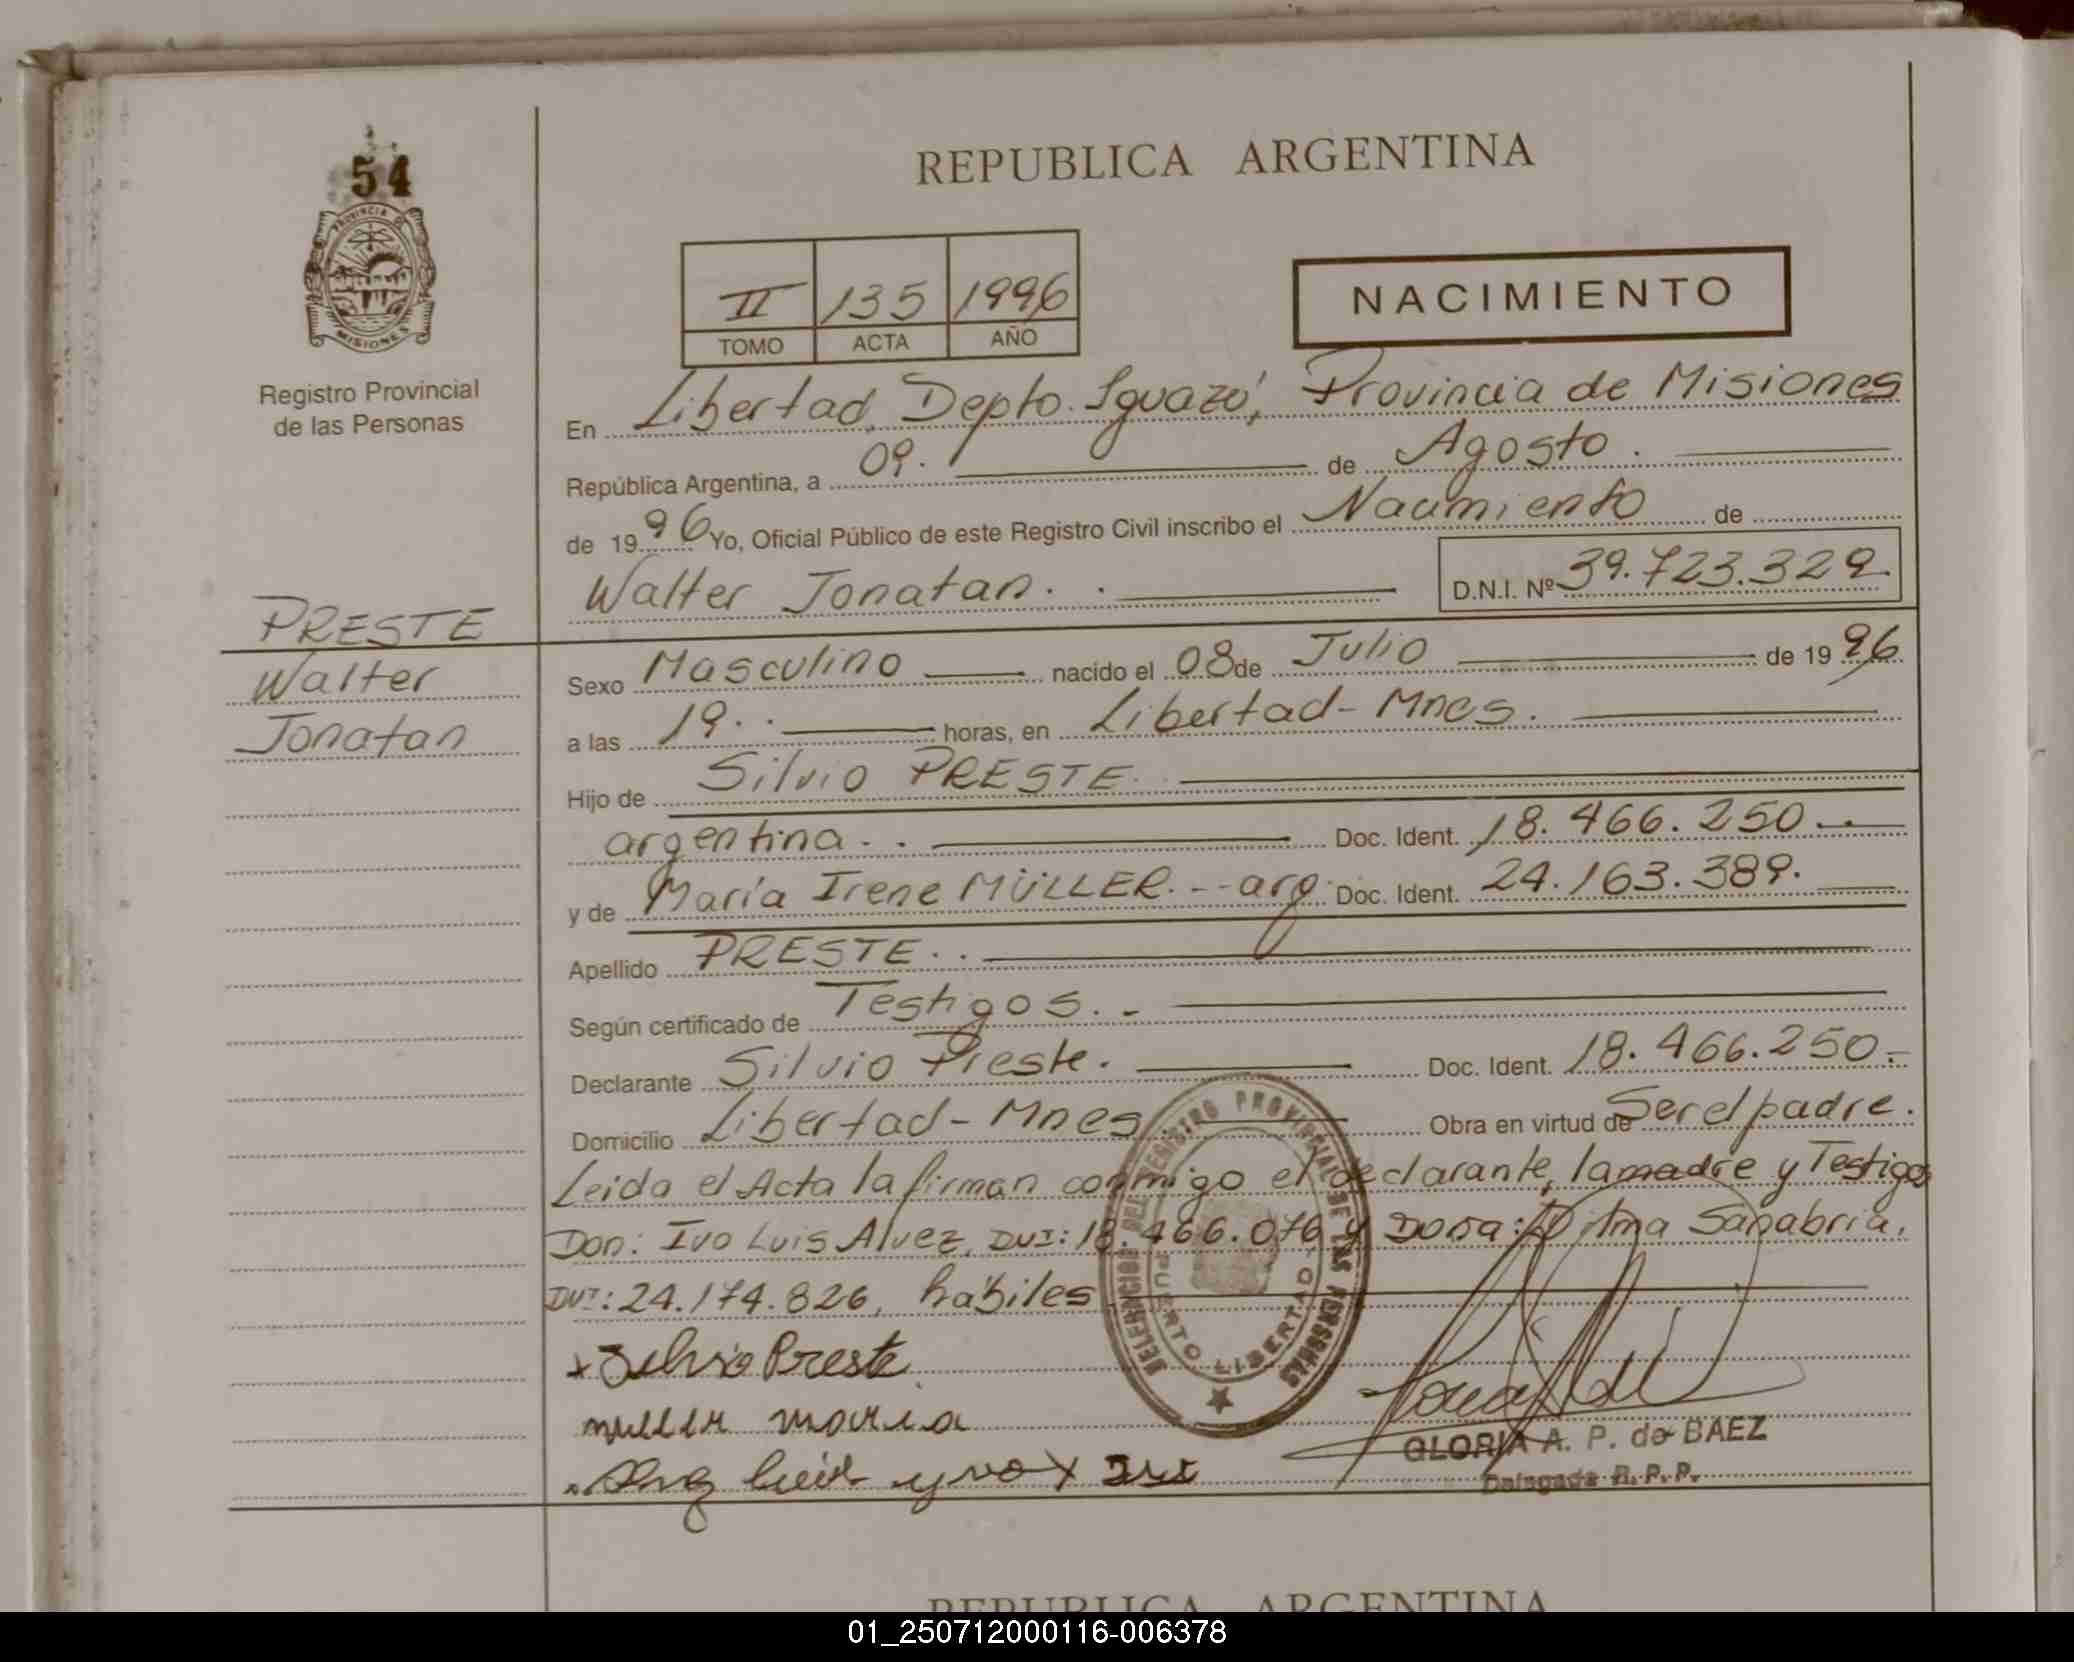 54
PROVINCIA D
MISIONES
Registro Provincial
de las Personas
PRESTE
Walter
Jonatan
REPUBLICA ARGENTINA
II 135 1996
TOMO ACTA AÑO
NACIMIENTO
En Libertad, Depto. Iguazú, Provincia de Misiones
República Argentina, a 09. de Agosto.
de 1996 Yo, Oficial Público de este Registro Civil inscribo el Nacimiento de
Walter Jonatan. . D.N.I. Nº 39.723.329
Sexo Masculino nacido el 08 de Julio de 1996
a las 19. . horas, en Libertad - Mnes.
Hijo de Silvio PRESTE.
argentina. . Doc. Ident. 18.466.250. .
y de María Irene MÜLLER. -- arg. Doc. Ident. 24.163.389.
Apellido PRESTE. .
Según certificado de Testigos. -
Declarante Silvio Preste. Doc. Ident. 18.466.250.-
Domicilio Libertad - Mnes Obra en virtud de Ser el padre.
Leida el Acta la firman conmigo el declarante, la madre y Testigos
Don: Ivo Luis Alvez, DNI: 18.466.076 y Doña: Dilma Sanabria,
DNI: 24.174.826, hábiles
DELEGACION DEL REGISTRO PROVINCIAL DE LAS PERSONAS
PUERTO LIBERTAD
x Silvio Preste
muller maria
GLORIA A. P. de BAEZ
Delegada R. P. P.
REPUBLICA ARGENTINA
01_250712000116-006378